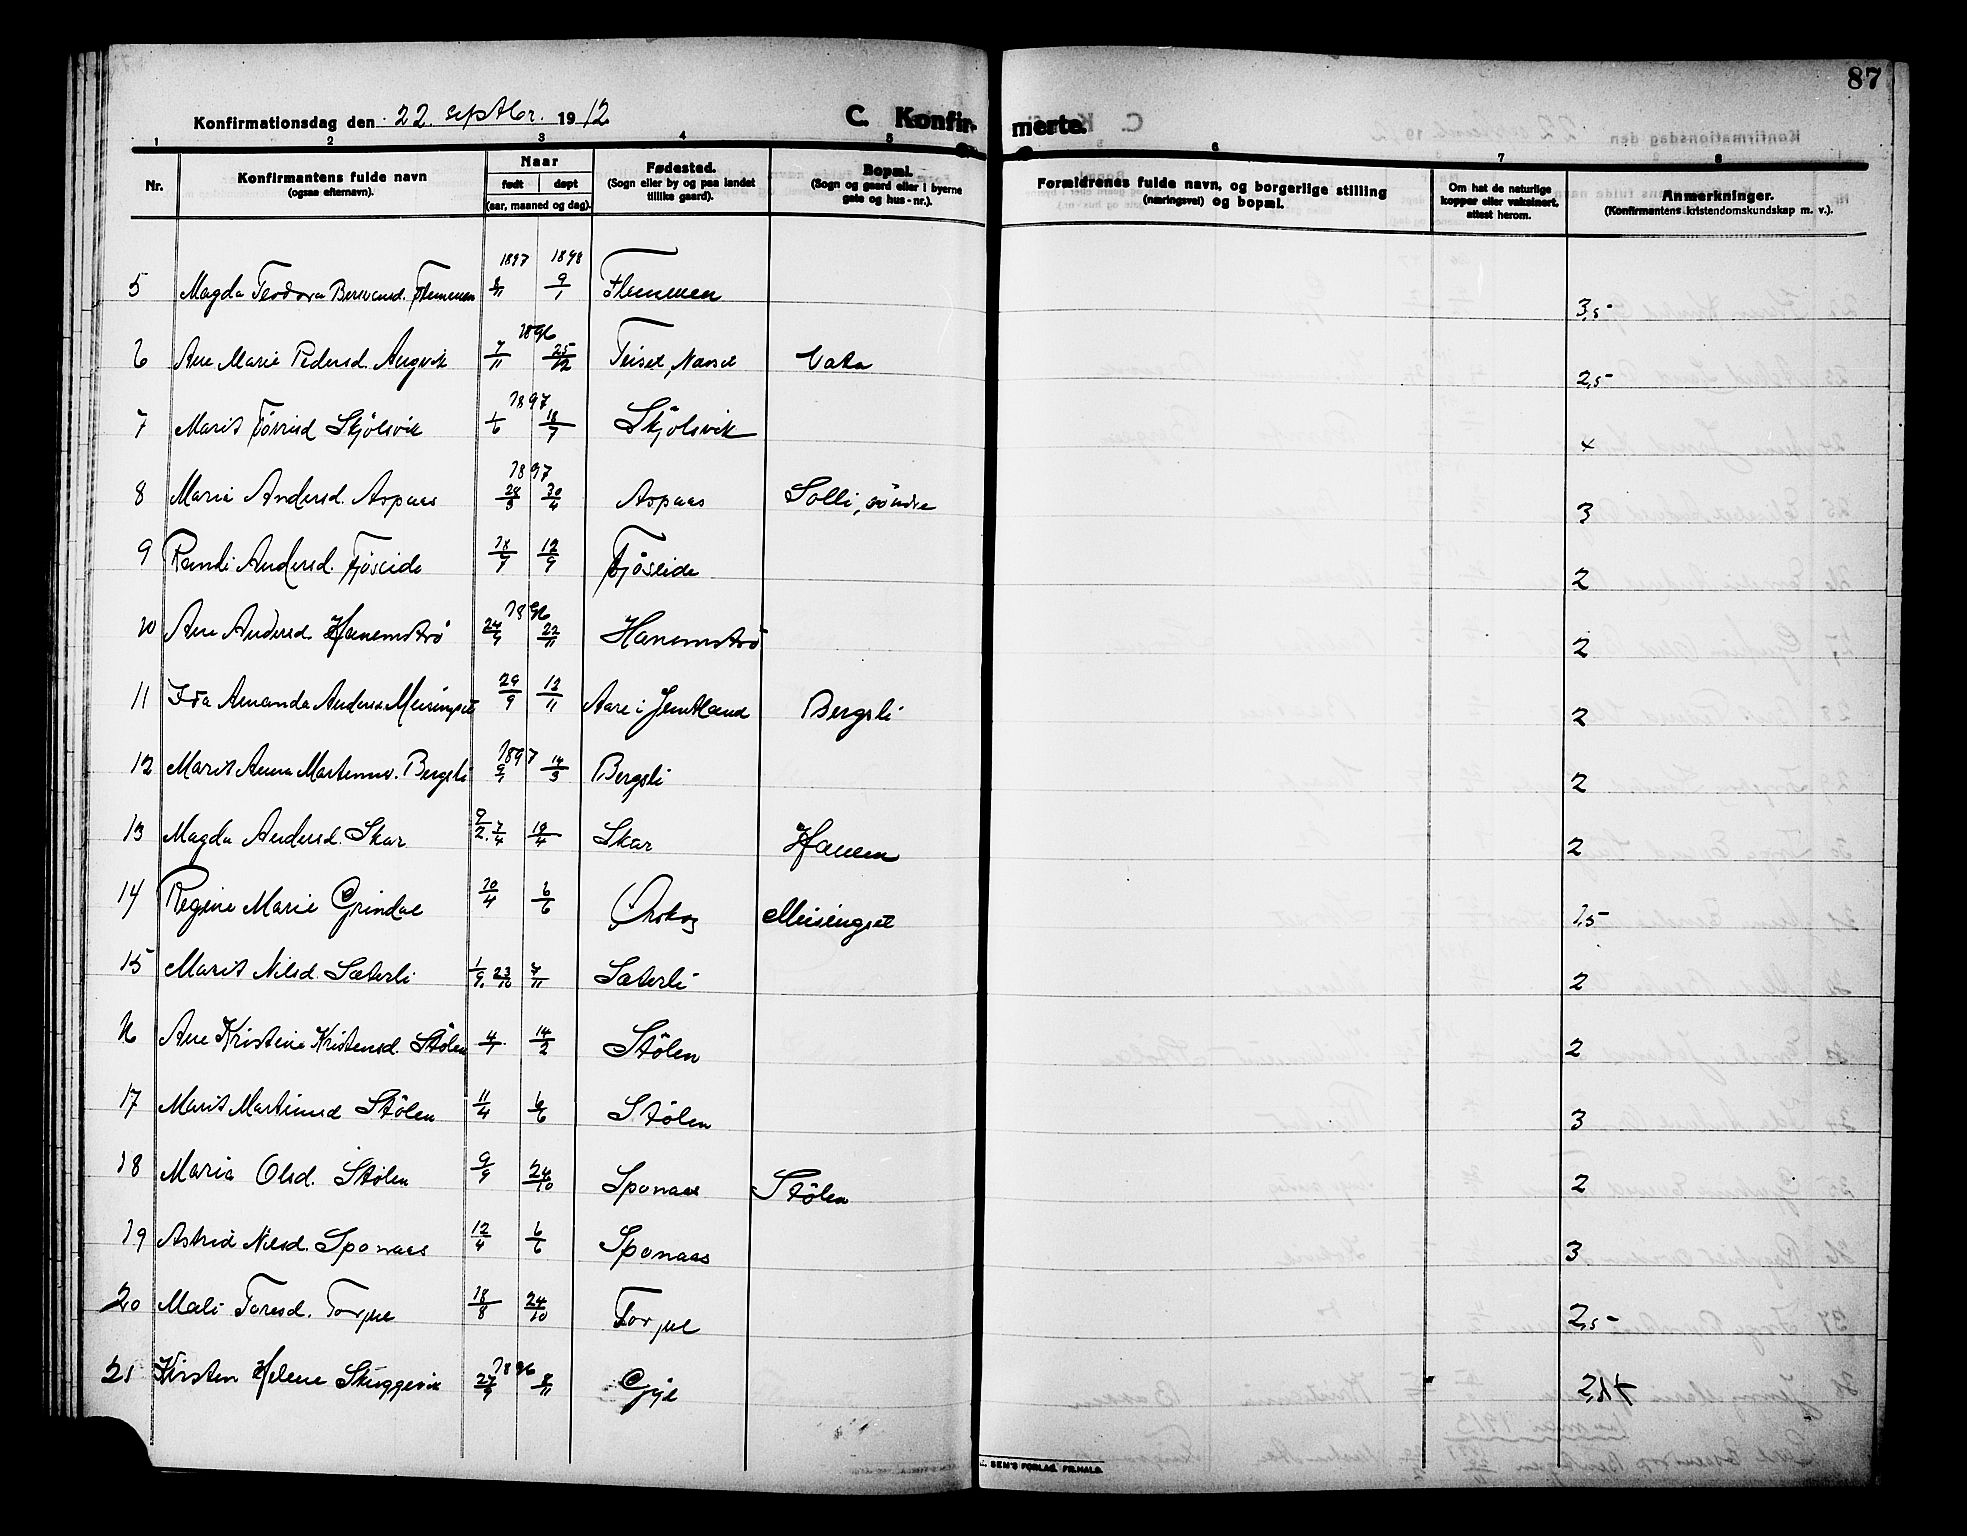 87
Konfirmationsdag den 22. septbr. 1912
C. Konfirmerte.
1 2 3 4 5 6 7 8
Nr. Konfirmantens fulde navn (ogsaa efternavn). Naar født døpt (aar, maaned og dag). Fødested. (Sogn eller by og paa landet tillike gaard). Bopæl. (Sogn og gaard eller i byerne gate og hus-nr.). Forældrenes fulde navn, og borgerlige stilling (næringsvei) og bopæl. Om hat de naturlige kopper eller vaksinert, attest herom. Anmerkninger. (Konfirmantens kristendomskundskap m. v.).
1897 1898
5 Magda Teodora Flemmen 9/1 Flemmen 3,5
1896
6 Ane Marie Pedersd. Angvik 7/11 25/12 Teiset, Næsset Vata 2,5
1897
7 Marit Skjölsvik 1/6 18/7 Skjölsvik 4
1897
8 Marie Andersd. Aspaas 28/3 30/4 Aspaas Solli, söndre 3
9 Randi Andersd. Fjöseide 18/7 12/9 Fjöseide 2
1896
10 Ane Andersd. Hanemströ 24/9 22/11 Hanemströ 2
11 Ida Amanda Anders. Meisingset 29/9 12/11 Aare i Jemtland Bergsli 2
1897
12 Marit Anna Bergsli 9/1 14/3 Bergsli 2
13 Magda Andersd. Skar 7/4 19/4 Skar Hanem 2
14 Regine Marie Grindal 20/4 6/6 Ørskog Meisingset 1,5
15 Marit Nilsd. Sæterli 23/10 7/11 Sæterli 2
16 Ane Kristine Kristensd. Stölen 4/1 14/2 Stölen 2
17 Marit Martinusd Stölen 11/4 6/6 Stölen 3
18 Maria Olsd. Stölen 9/9 24/10 Sponaas Stölen 2
19 Astrid Nilsd. Sponaas 12/4 6/6 Sponaas 3
20 Mali Toresd. Torjul 18/8 24/10 Torjul 2,5
1896
21 Kirsten Helene Skuggevik 27/9 8/11 Gyl
SEM'S FORLAG, FR.HALD.